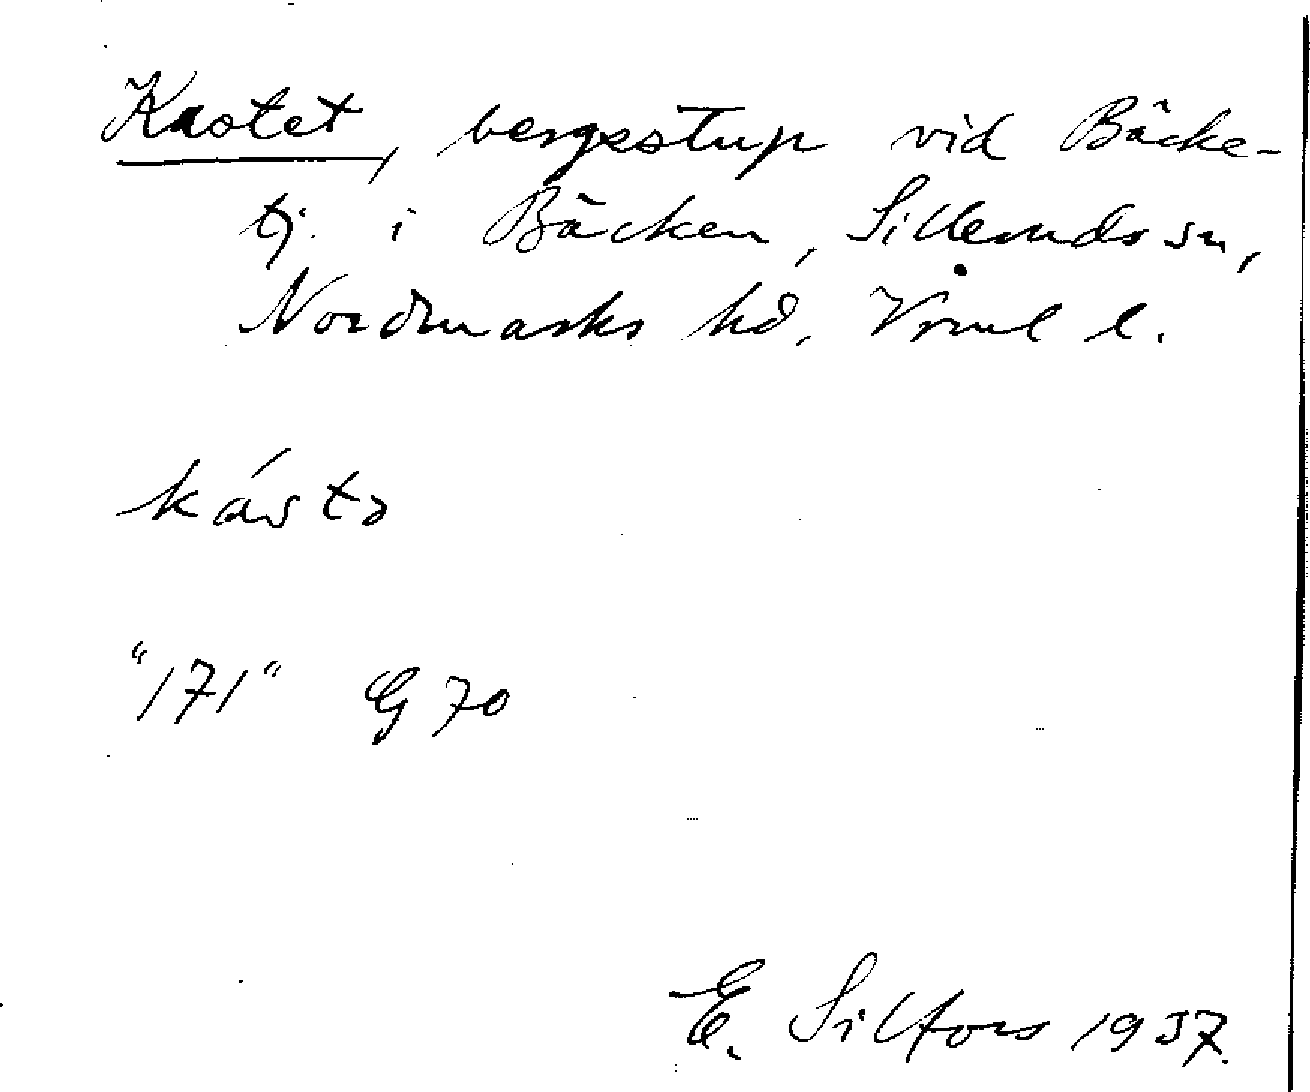 Kastet, bergsstup vid Bäcke-
tj. i Bäcken, Sillerudssn,
Nordmarks hd, Värml l.
kástə
"171" G 70
E. Silfors 1937.